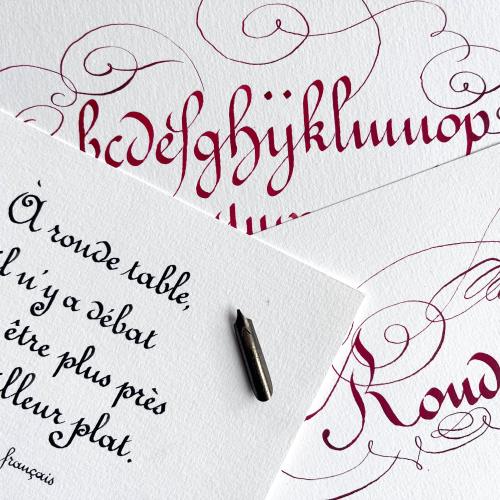 bcdefghÿklmnop
À ronde table,
il n'y a débat
être plus près
illeur plat.
français
Rond